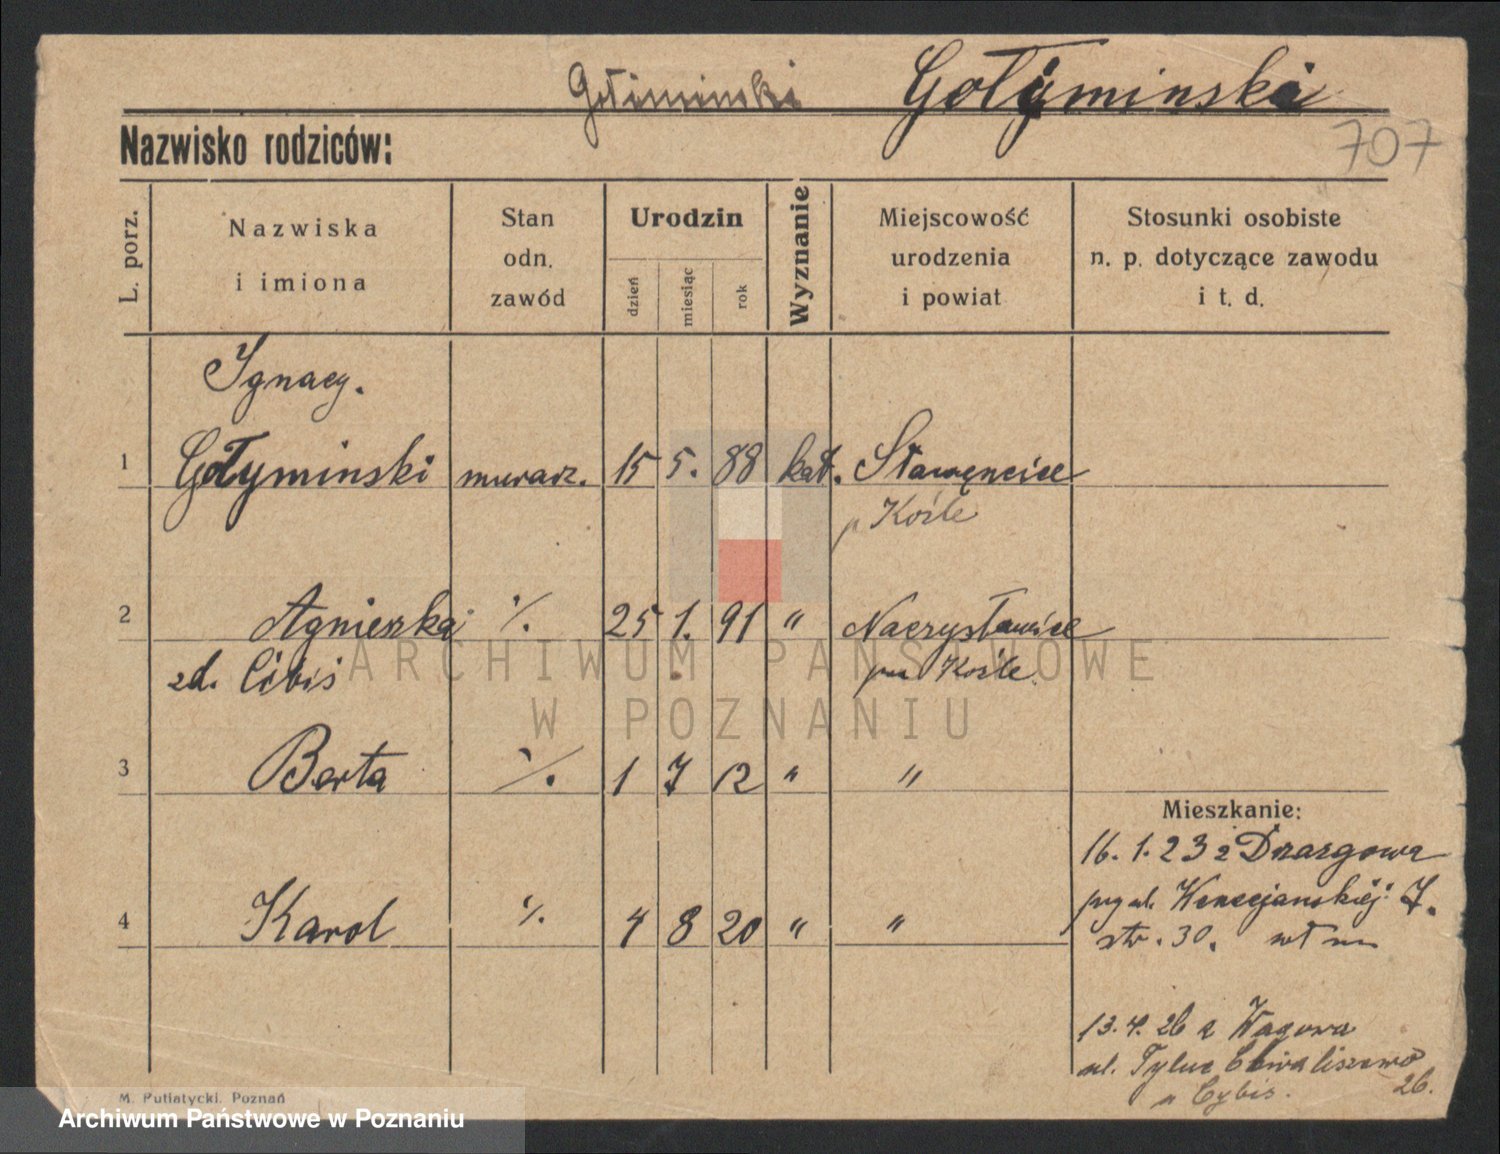 Gołiminski Gołyminski
707
Nazwisko rodziców:
L. porz.
Nazwiska
i imiona
Stan
odn.
zawód
Urodzin
dzień
miesiąc
rok
Wyznanie
Miejscowość
urodzenia
i powiat
Stosunki osobiste
n. p. dotyczące zawodu
i t. d.
Ignacy.
1 Gołyminski murarz. 15 5. 88 kat. Sławęncice
p Koźle
2 Agnieszka ·/. 25 1. 91 " Naczysławice
zd. Cibis pow Koźle
3 Berta ·/. 1 7 12 " "
Mieszkanie:
16. 1. 23 z Drargowa
4 Karol ·/. 4 8 20 " "
przy ul. Wenecjańskiej 7.
str. 30.
13. 4. 26 z Wagowa
ul. Tylne Chwaliszewo
26.
u Cybis.
M. Putiatycki. Poznań
Archiwum Państwowe w Poznaniu
ARCHIWUM PAŃSTWOWE
W POZNANIU